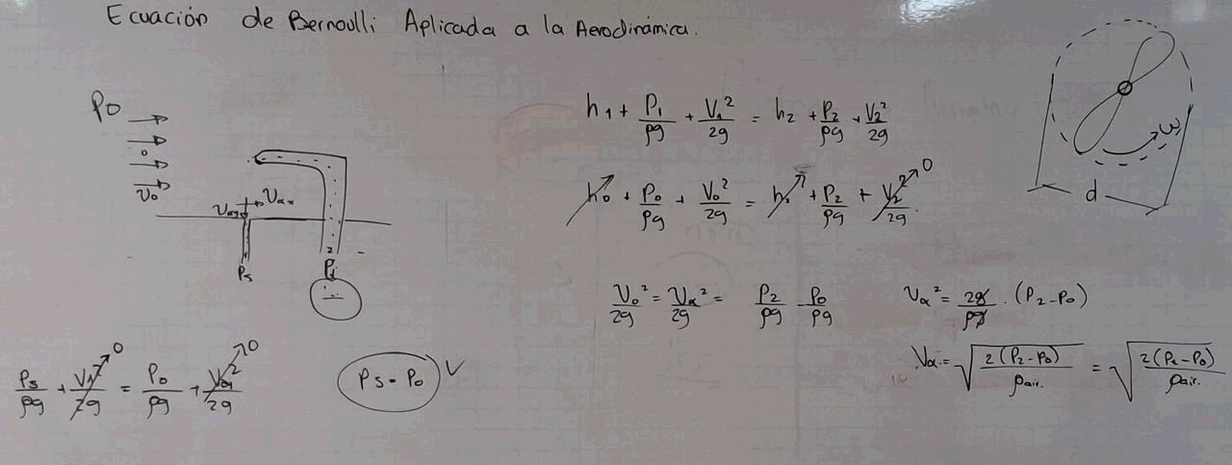 Ecuación de Bernoulli Aplicada a la Aerodinámica.
P0
0
V0
Vay Vax
Ps
2
Pi
h1 + P1/ρg + V1²/2g = h2 + P2/ρg + V2²/2g
h0 + P0/ρg + V0²/2g = h0 + P2/ρg + V2²/2g 0
ω
d
V0²/2g = Va²/2g = P2/ρg - P0/ρg
Va² = 2g/ρg · (P2 - P0)
Va = √(2(P2 - P0)/ρair.) = √(2(Pi - P0)/ρair.)
Ps/ρg + V1²/2g 0 = P0/ρg + Vay²/2g 0
Ps = P0